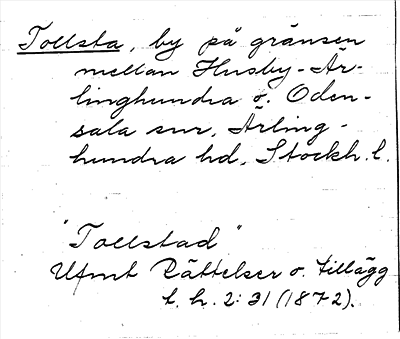 Tollsta, by på gränsen
mellan Husby-Är-
linghundra o. Oden-
sala snr, Ärling-
hundra hd, Stockh. l.
"Tollstad"
Utmt Rättelser o. tillägg
t. h. 2:31 (1872).